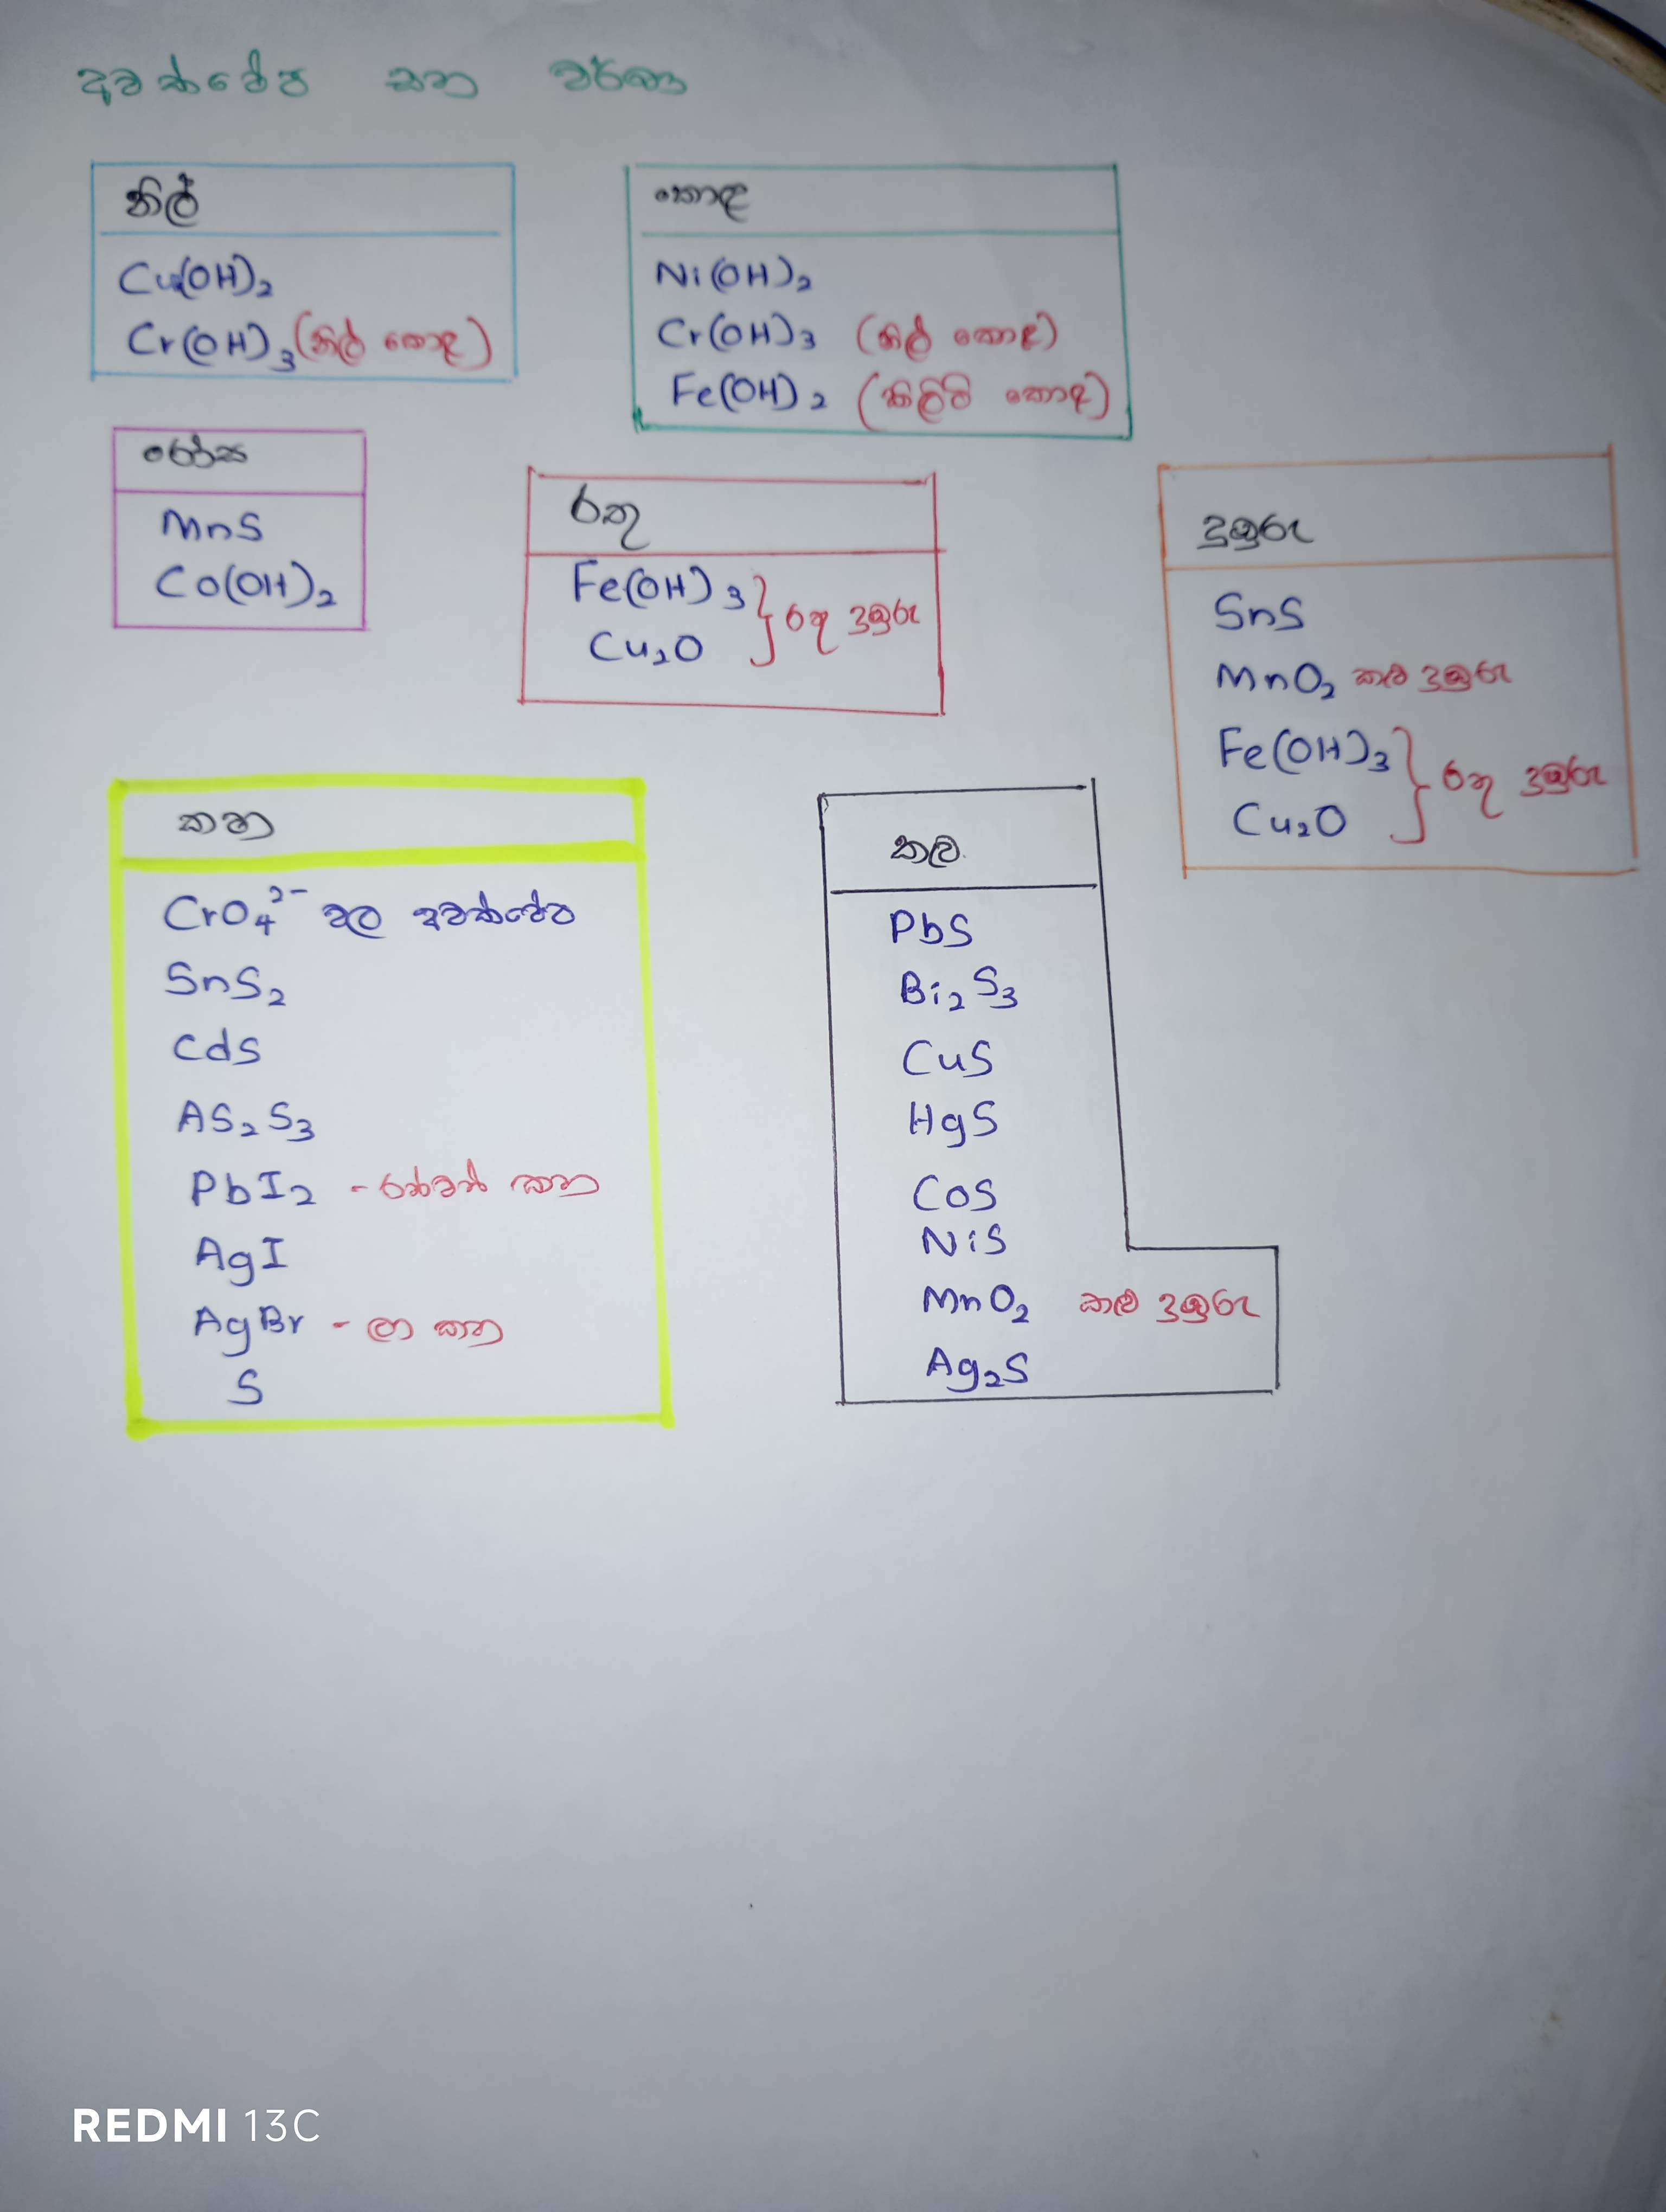 අවක්ෂේප සහ වර්ණ
නිල්
Cu(OH)₂
Cr(OH)₃ (නිල් කොළ)
කොළ
Ni(OH)₂
Cr(OH)₃ (නිල් කොළ)
Fe(OH)₂ (කිලිටි කොළ)
රෝස
MnS
Co(OH)₂
රතු
Fe(OH)₃ } රතු දුඹුරු
Cu₂O
දුඹුරු
SnS
MnO₂ කළු දුඹුරු
Fe(OH)₃ } රතු දුඹුරු
Cu₂O
කහ
CrO₄²⁻ වල අවක්ෂේප
SnS₂
CdS
AS₂S₃
PbI₂ - රන්වන් කහ
AgI
AgBr - ලා කහ
S
කලු
PbS
Bi₂S₃
CuS
HgS
CoS
NiS
MnO₂ කළු දුඹුරු
Ag₂S
REDMI 13C